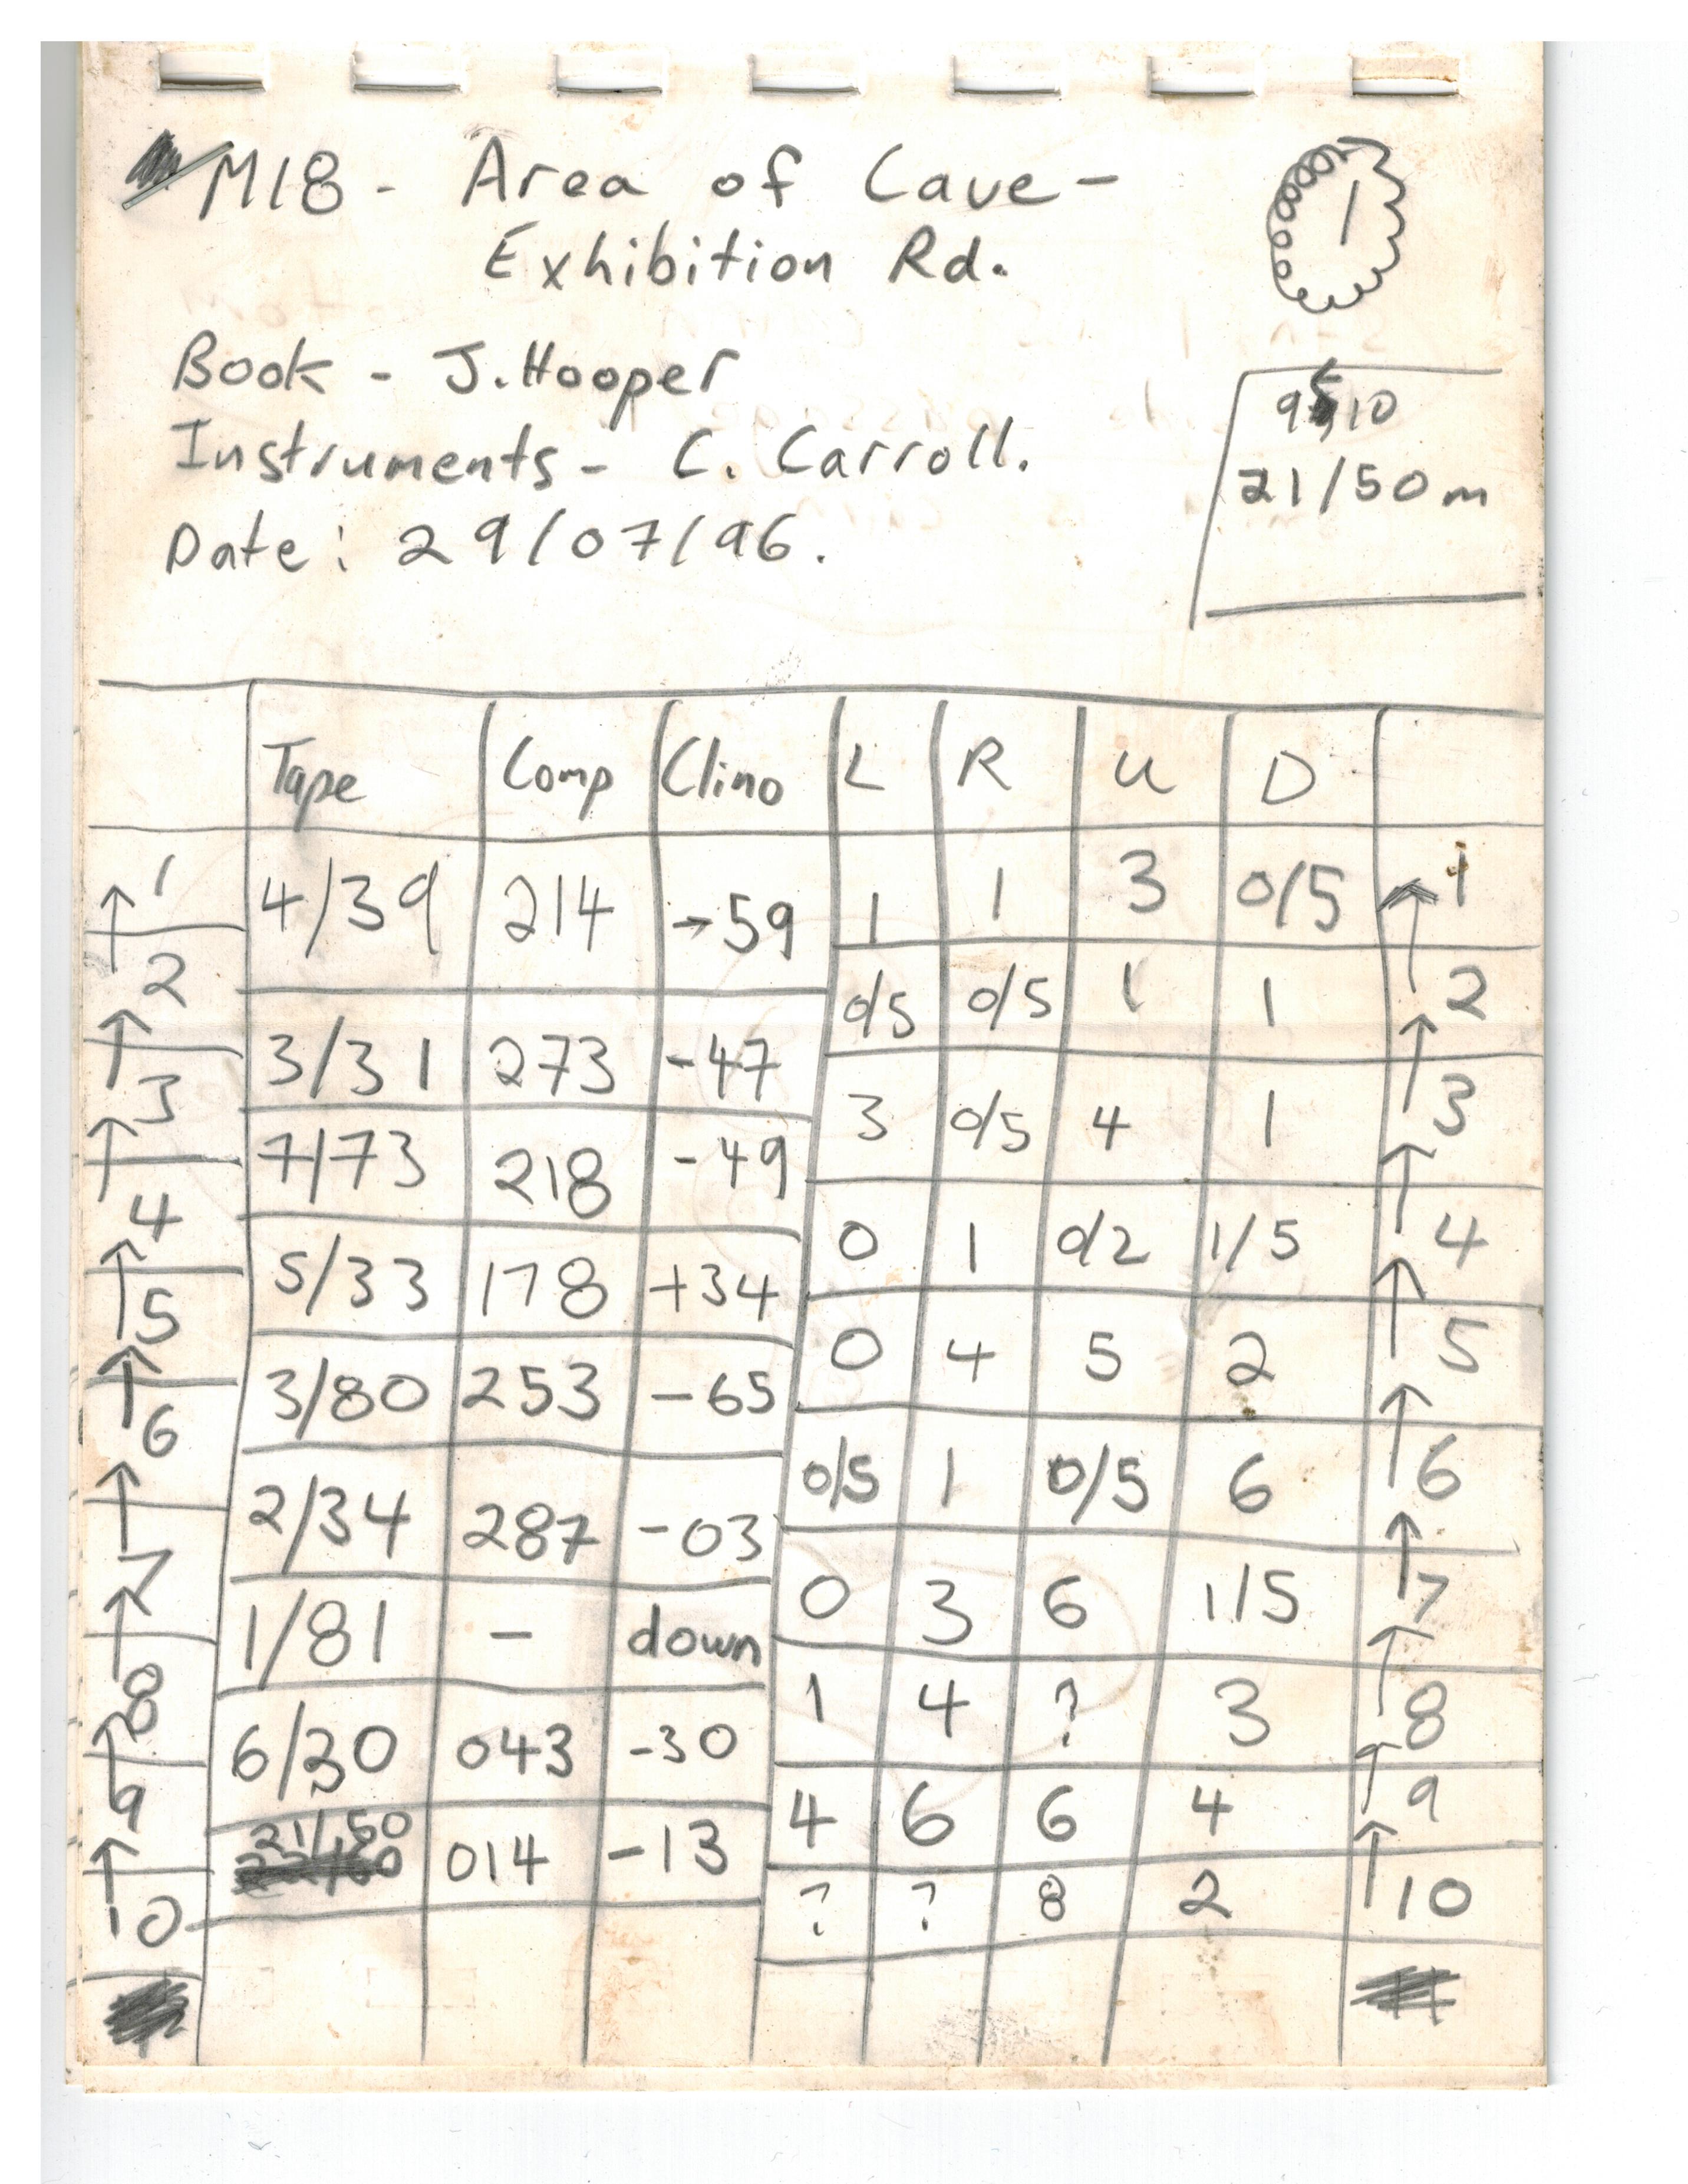 M18 - Area of Cave -
Exhibition Rd.
1
Book - J. Hooper
Instruments - C. Carroll.
Date: 29/07/96.
21/50m
Tape Comp Clino L R U D
1 4/39 214 -59 1 1 3 0/5 1
2 3/31 273 -47 0/5 0/5 1 1 2
3 7/73 218 -49 3 0/5 4 1 3
4 5/33 178 +34 0 1 0/2 1/5 4
5 3/80 253 -65 0 4 5 2 5
6 2/34 287 -03 0/5 1 0/5 6 6
7 1/81 - down 0 3 6 1/5 7
8 6/30 043 -30 1 4 ? 3 8
9 21/50 014 -13 4 6 6 4 9
10 ? ? 8 2 10